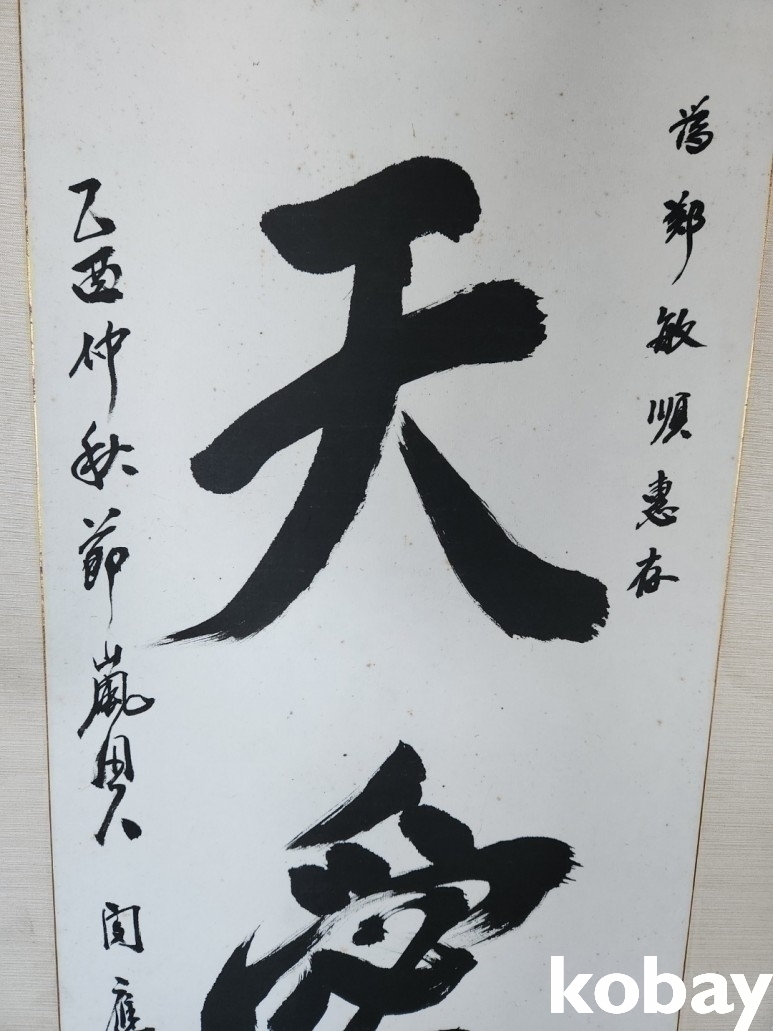 為鄭敏順惠存
天愛
乙酉仲秋節嵐人 閔應
kobay